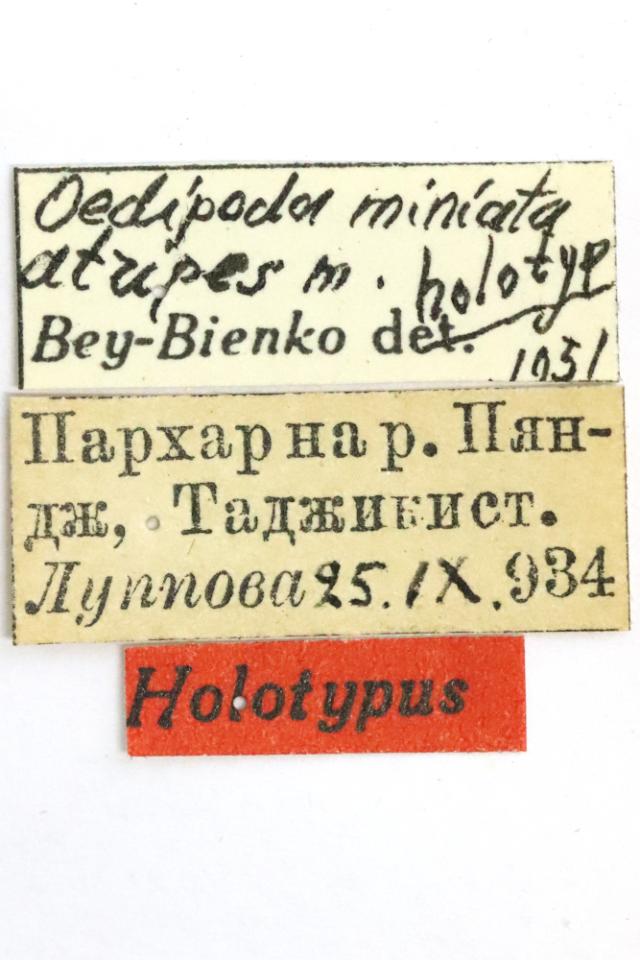 Oedipoda miniata
atripes m. holotyp
Bey-Bienko det. 1951
Пархар на р. Пян-
дж, Таджикист.
Луппова 25.IX.934
Holotypus